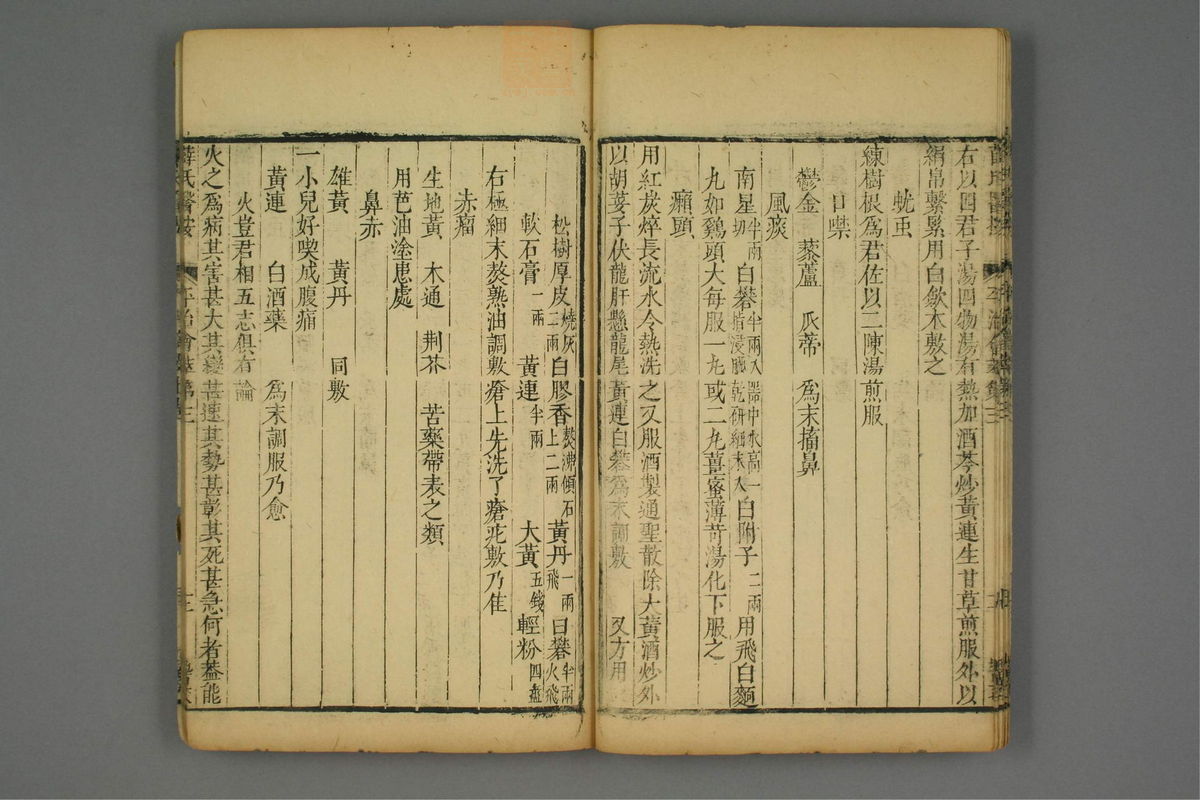 右以四君子湯四物湯有熱加酒芩炒黃連生甘草煎服外以
絹帛繫緊用白歛末敷之
蚘虫
練樹根為君佐以二陳湯煎服
口㗜
鬱金 藜蘆 瓜蒂 為末搐鼻
風痰
南星半兩切 白礬半兩入器中水高一指浸晒乾研細末入 白附子二兩 用飛白麵
丸如鷄頭大每服一丸或二丸薑蜜薄苛湯化下服之
癩頭
用紅炭焠長流水令熱洗之又服酒製通聖散除大黃酒炒外
以胡荽子伏龍肝懸龍尾黃連白礬為末調敷 又方用
松樹厚皮燒灰二兩 白膠香熬沸傾石上二兩 黃丹一兩飛 白礬半兩火飛
軟石膏一兩 黃連半兩 大黃五錢 輕粉四盝
右極細末熬熟油調敷瘡上先洗了瘡疕敷乃佳
赤瘤
生地黃 木通 荆芥 苦藥帶表之類
用芭油塗患處
鼻赤
雄黃 黃丹 同敷
一小兒好喫成腹痛
黃連 白酒藥 為末調服乃愈
火豈君相五志俱有論
火之為病其害甚大其變甚速其勢甚彰其死甚急何者蓋能